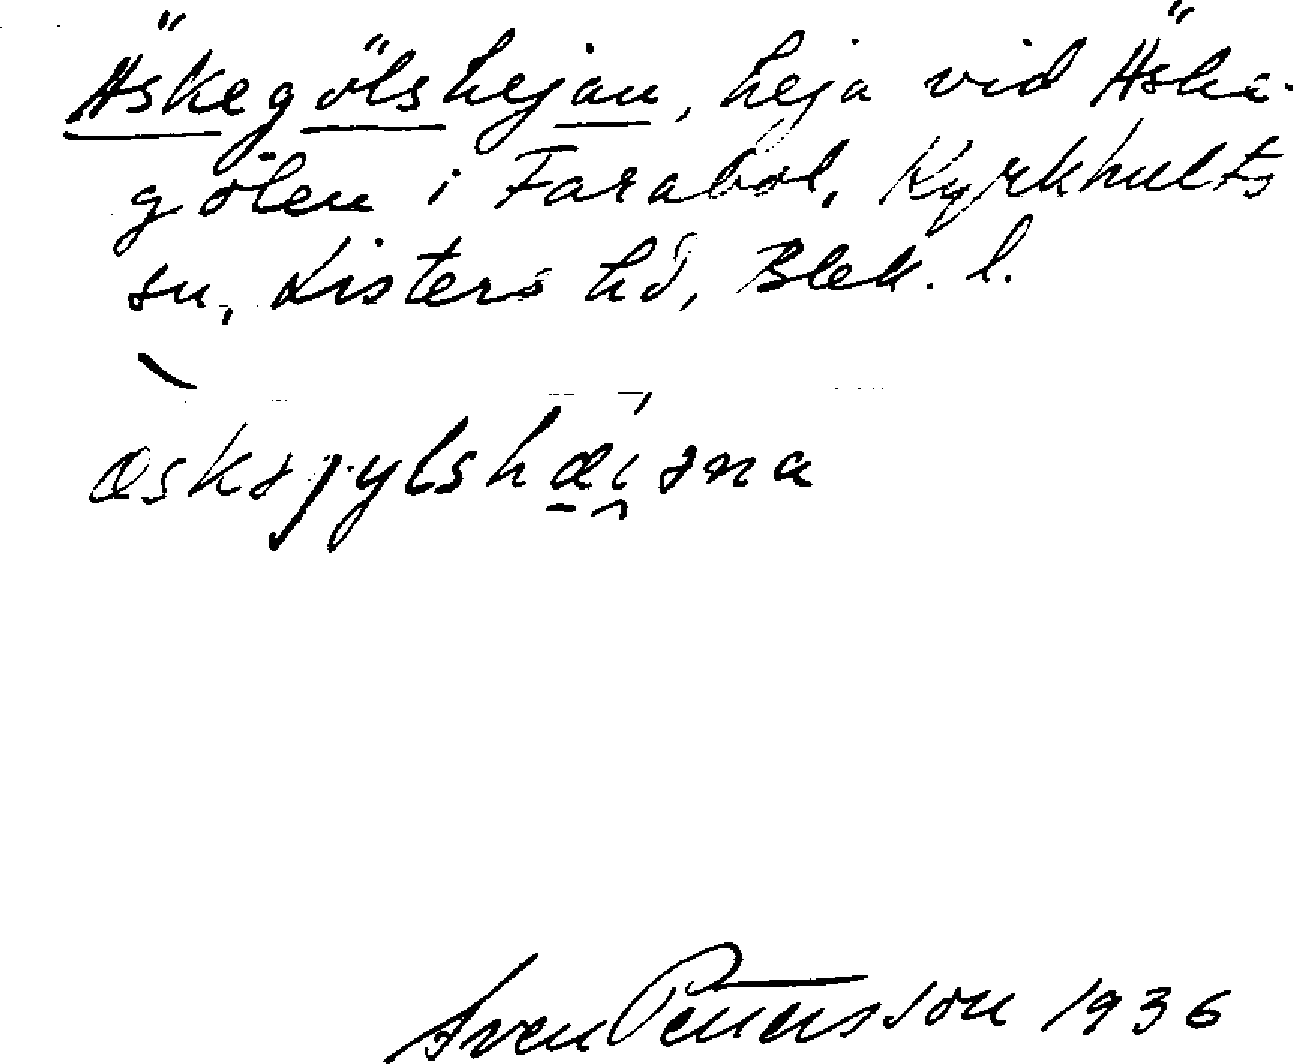 Äskegölshejan, heja vid Äske-
gölen i Farabol, Kyrkhults
sn, Listers hd, Blek. l.
æskəɟylshæiəna
Sven Petersson 1936